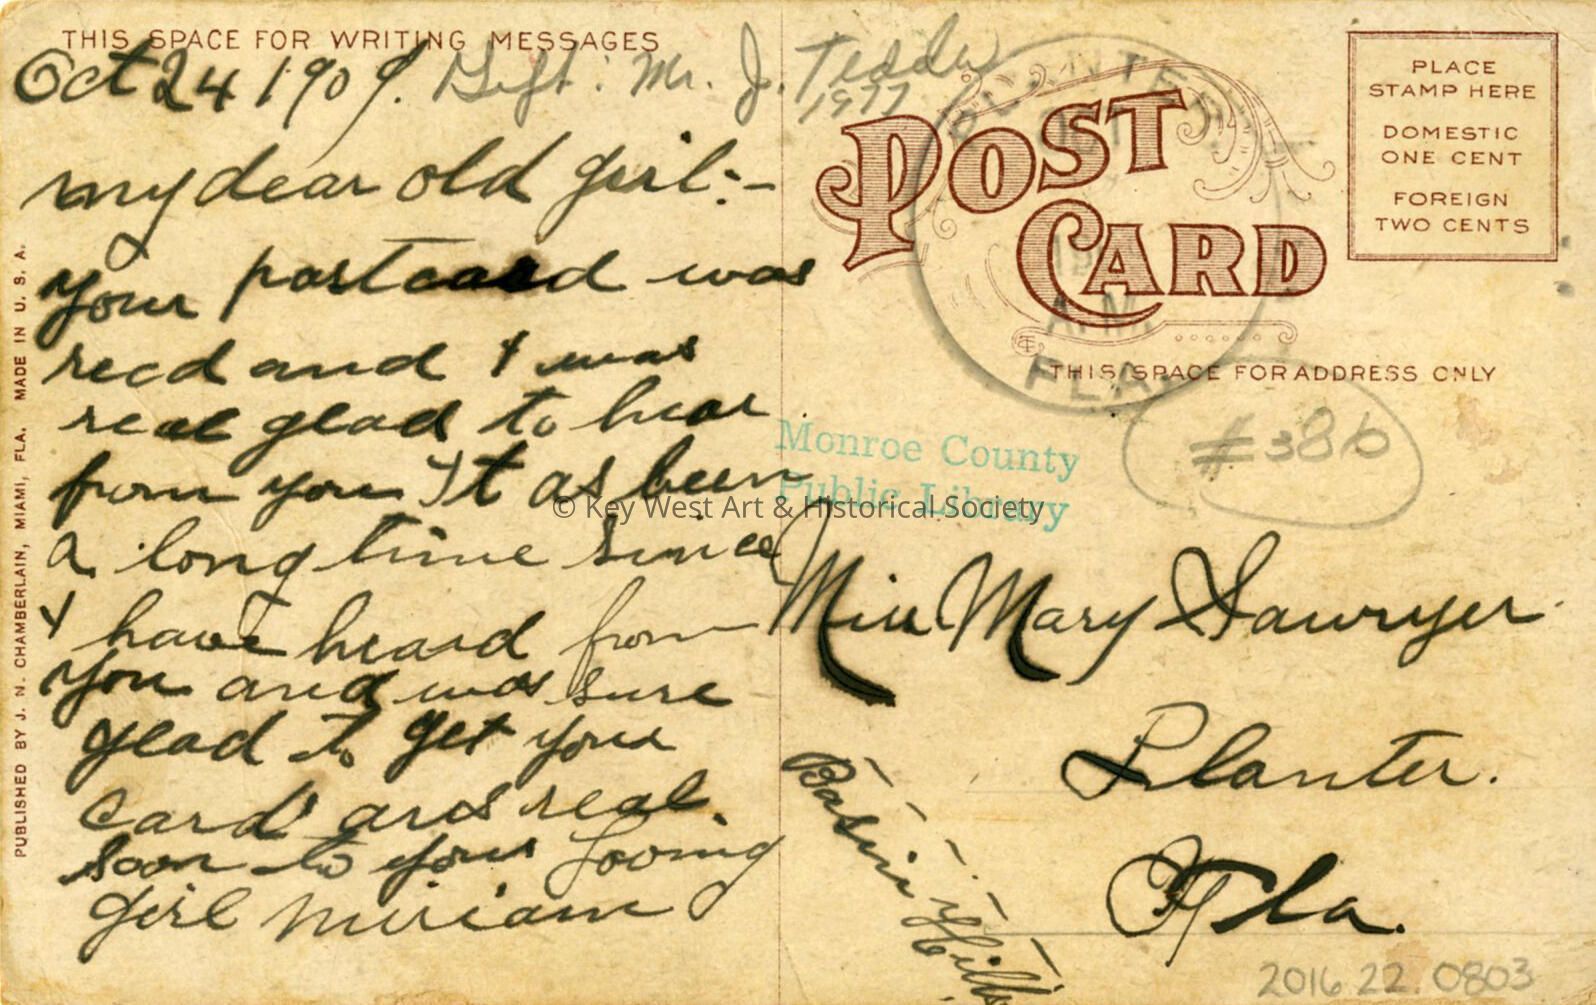 THIS SPACE FOR WRITING MESSAGES
Oct 24 1909.
Gift: Mr. J. Tedder
1977
my dear old girl:-
your postcard was
recd and I was
real glad to hear
from you It as been
a long time since
I have heard from
you and was sure
glad to get your
card ans real
soon to your Loving
girl Miriam
PUBLISHED BY J. N. CHAMBERLAIN, MIAMI, FLA. MADE IN U. S. A.
POST
CARD
PLACE
STAMP HERE
DOMESTIC
ONE CENT
FOREIGN
TWO CENTS
A.M.
FLA.
THIS SPACE FOR ADDRESS ONLY
#386
Monroe County
Public Library
© Key West Art & Historical Society
Miss Mary Sawyer
Planter.
Fla.
Basin Hills
2016.22.0803